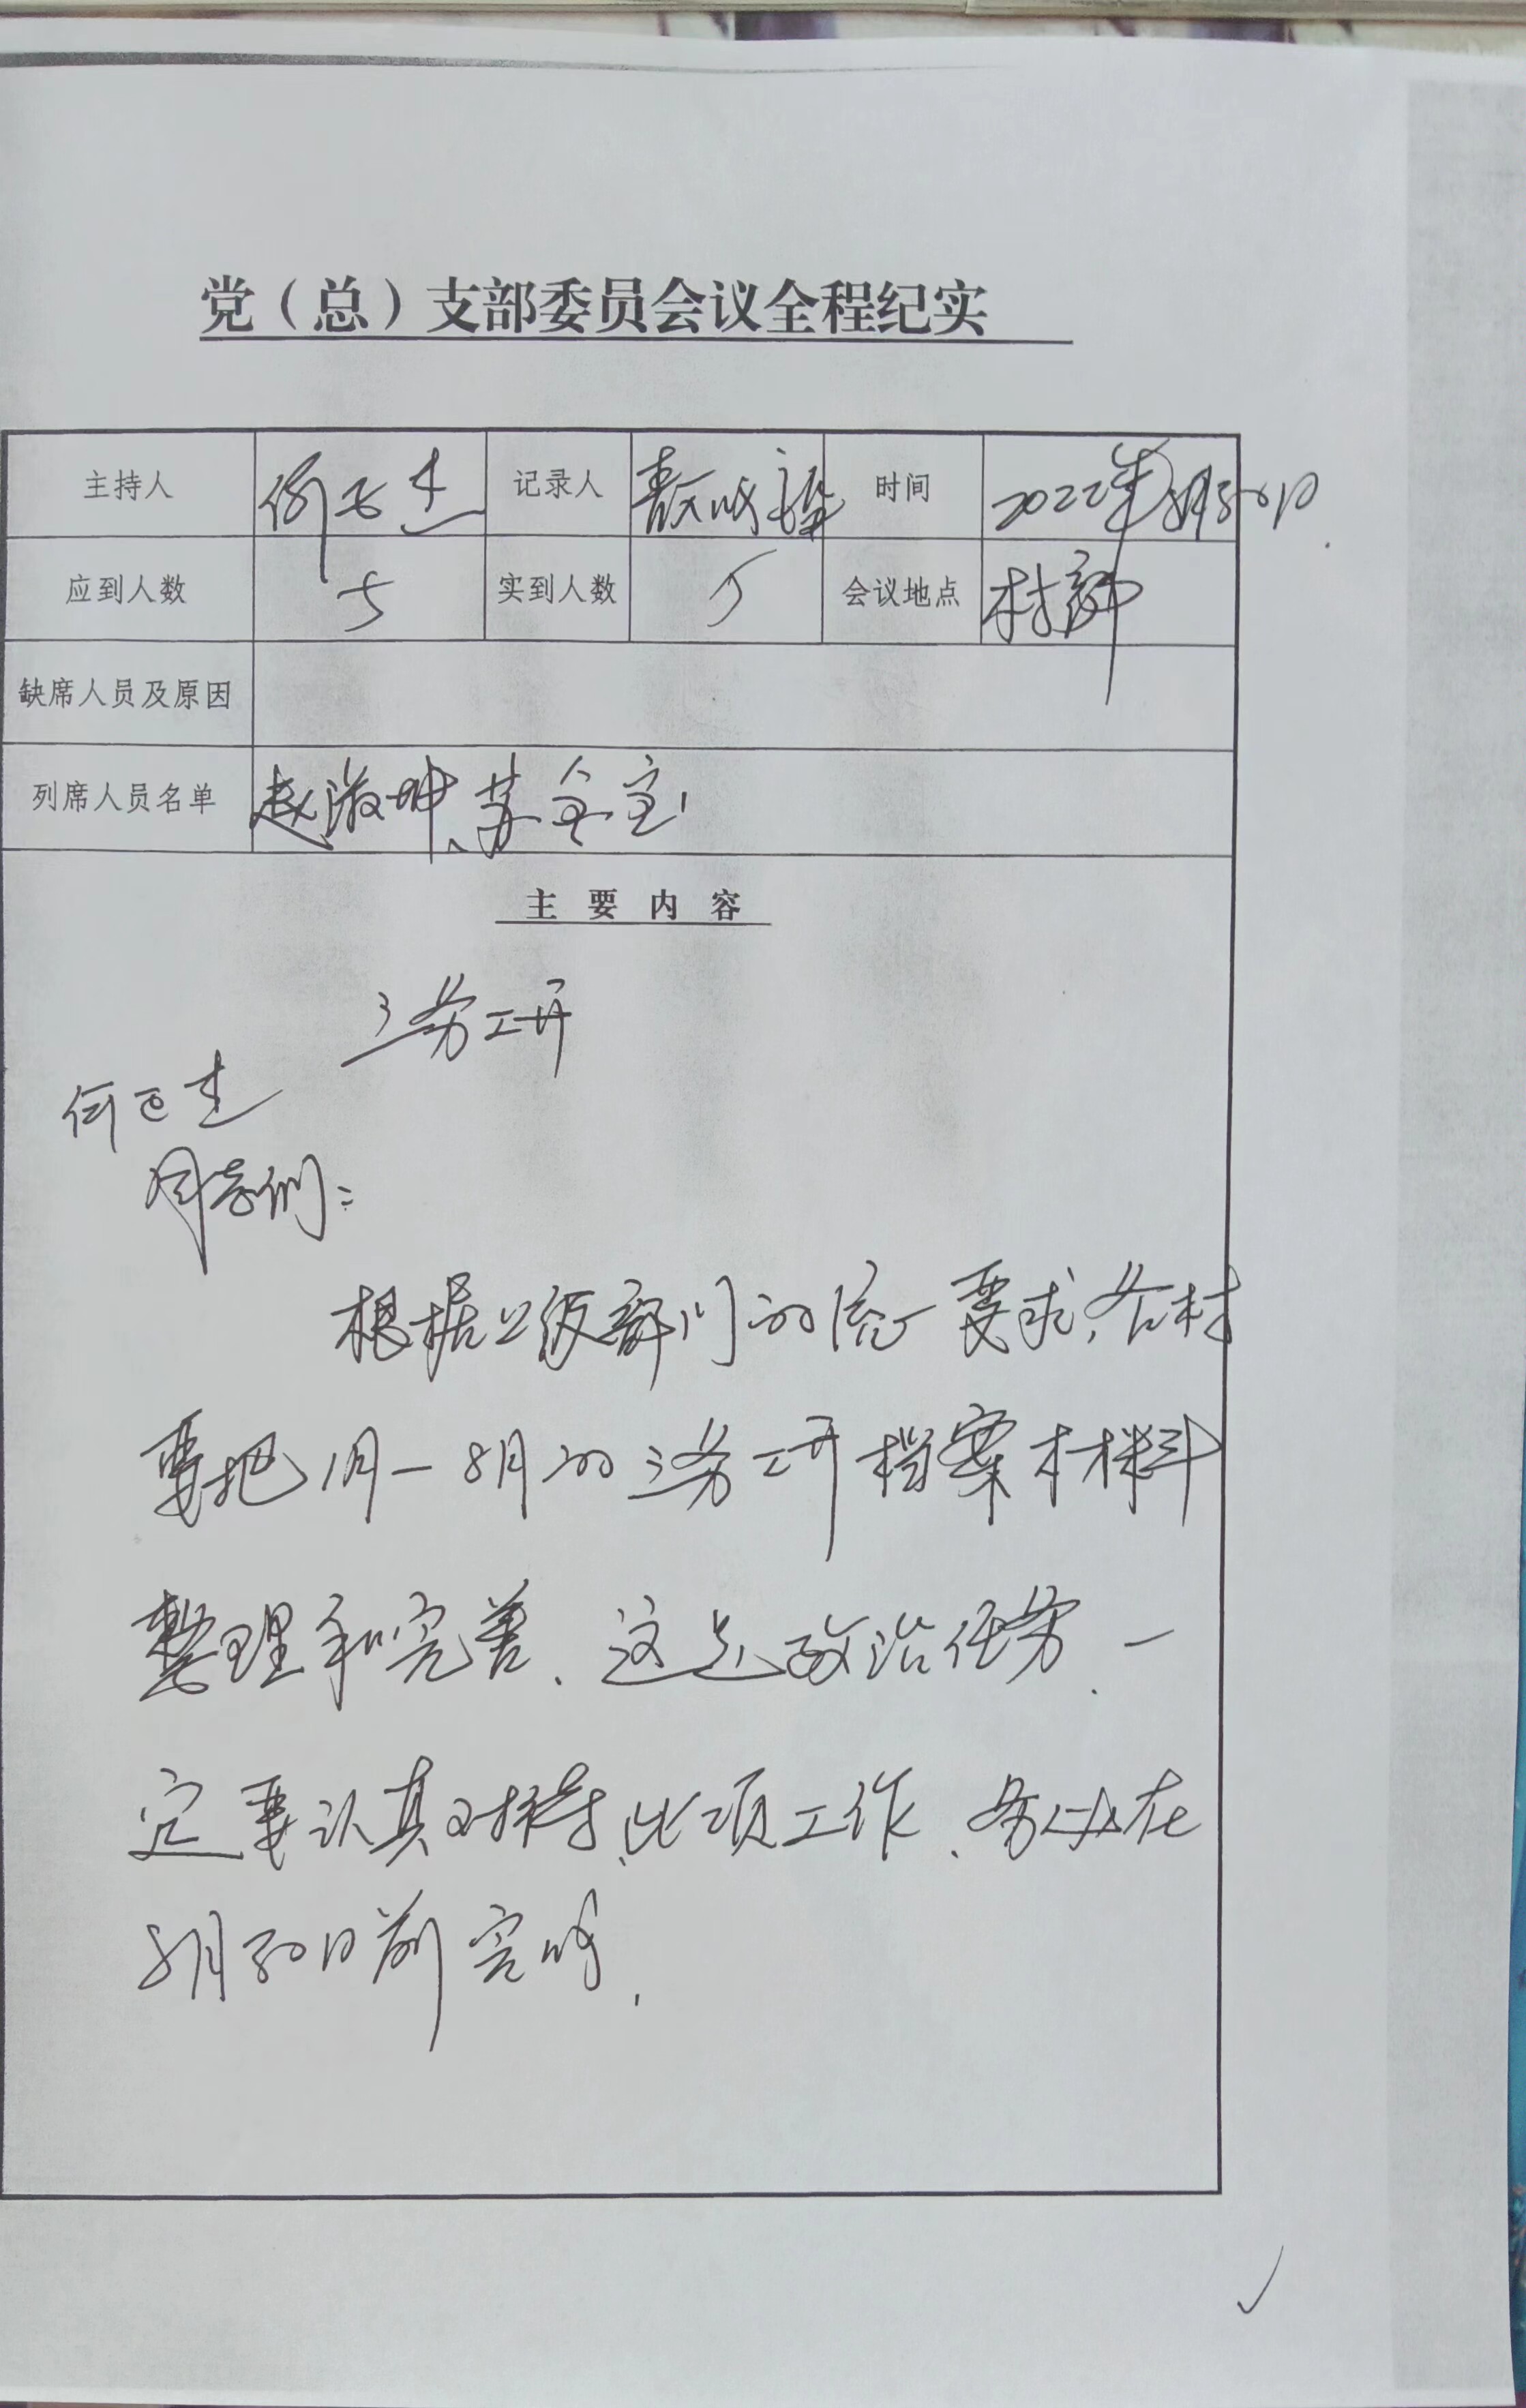 党（总）支部委员会议全程纪实
主持人 何 记录人 时间 2022年8月30日
应到人数 5 实到人数 5 会议地点 村部
缺席人员及原因
列席人员名单 赵淑坤、苏金宝
主要内容
三务公开
何
同志们：
根据上级部门的统一要求，各村
要把1月—8月的三务公开档案材料
整理和完善、这是政治任务、一
定要认真对待此项工作、务必在
8月30日前完成.